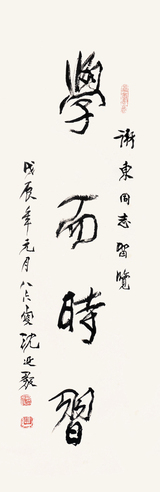 學而時習
謝東同志留覽
戊辰年元月八六叟沈延毅